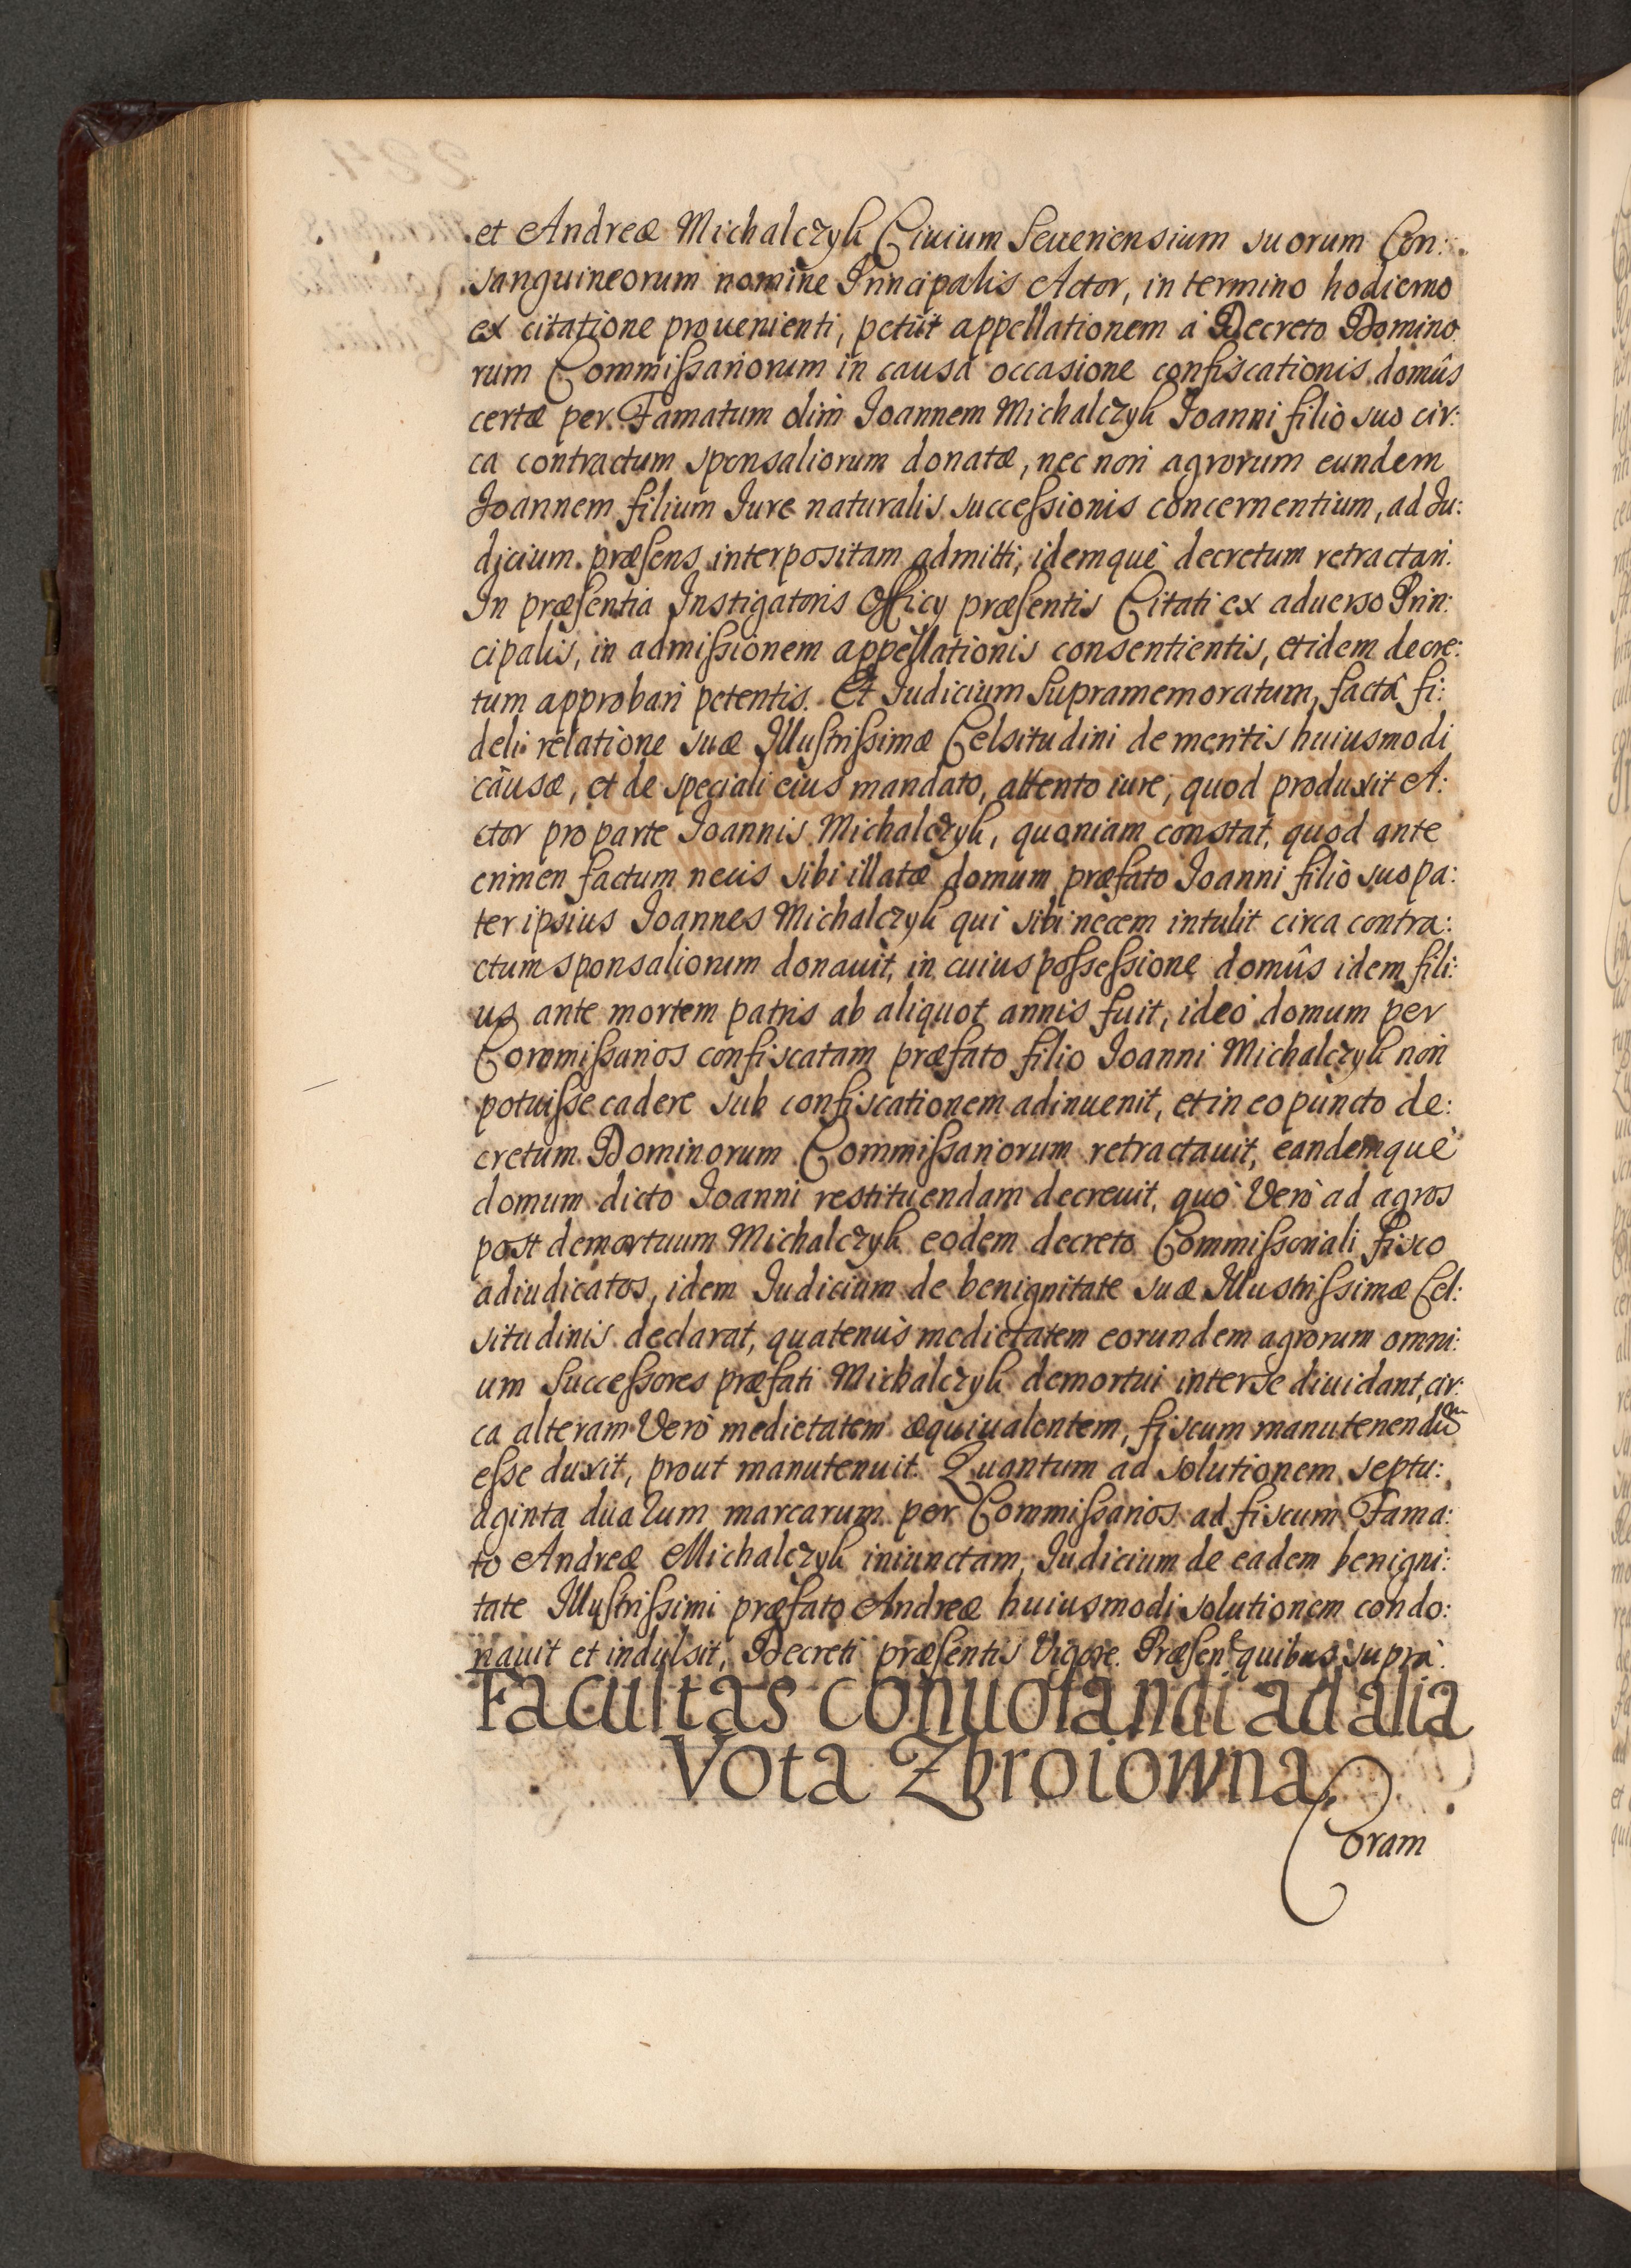 et Andreæ Michalczyk Ciuium Seueriensium suorum Con:
sanguineorum nomine Principalis Actor, in termino hodierno
ex citatione prouenienti, petiit appellationem à Decreto Domino
rum Commissariorum in causa occasione confiscationis domûs
certæ per Famatum olim Ioannem Michalczyk Ioanni filio suo cir:
ca contractum sponsaliorum donatæ, nec non agrorum eundem
Ioannem filium Iure naturalis successionis concernentium, ad Iu:
dicium præsens interpositam admitti, idemque decretum retractari.
In præsentia Instigatoris Officy præsentis Citati ex aduerso Prin:
cipalis, in admissionem appellationis consentientis, et idem decre:
tum approbari petentis. Et Iudicium supramemoratum, factâ fi:
deli relatione suæ Illustrissimæ Celsitudini de meritis huiusmodi
causæ, et de speciali eius mandato, attento iure, quod produxit A:
ctor pro parte Ioannis Michalczyk, quoniam constat, quod ante
crimen factum necis sibi illatæ domum præfato Ioanni filio suo pa:
ter ipsius Ioannes Michalczyk qui sibi necem intulit circa contra:
ctum sponsaliorum donauit, in cuius possessione domûs idem fili:
us ante mortem patris ab aliquot annis fuit, ideo domum per
Commissarios confiscatam præfato filio Ioanni Michalczyk non
potuisse cadere sub confiscationem adinuenit, et in eo puncto de:
cretum Dominorum Commissariorum retractauit, eandemque
domum dicto Ioanni restituendam decreuit, quo Vero ad agros
post demortuum Michalczyk eodem decreto Commissoriali fisco
adiudicatos, idem Iudicium de benignitate suæ Illustrissimæ Cel:
situdinis declarat, quatenus medietatem eorundem agrorum omni:
um Successores præfati Michalczyk demortui inter se diuidant, cir:
ca alteram Vero medietatem æquiualentem, fiscum manutenendũ
esse duxit, prout manutenuit. Quantum ad solutionem septu:
aginta duarum marcarum per Commissarios ad fiscum Fama:
to Andreæ Michalczyk iniunctam, Iudicium de eadem benigni:
tate Illustrissimi præfato Andreæ huiusmodi solutionem condo:
nauit et indulsit, Decreti præsentis Vigore. Præsente quibus supra.
Facultas conuolandi ad alia
Vota Zbroiowna.
Coram